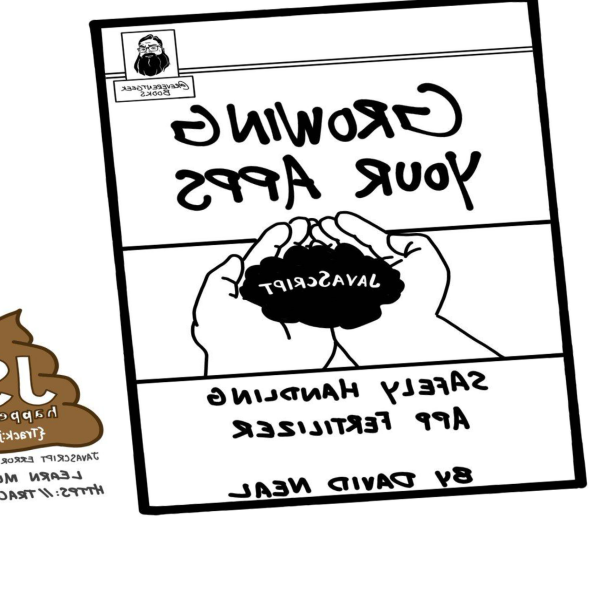 @REVERENTGEEK
BOOKS
GROWING
YOUR APPS
JAVASCRIPT
SAFELY HANDLING
APP FERTILIZER
BY DAVID NEAL
JS
happe
{Track:j
JAVASCRIPT ERROR
LEARN MO
HTTPS://TRAC